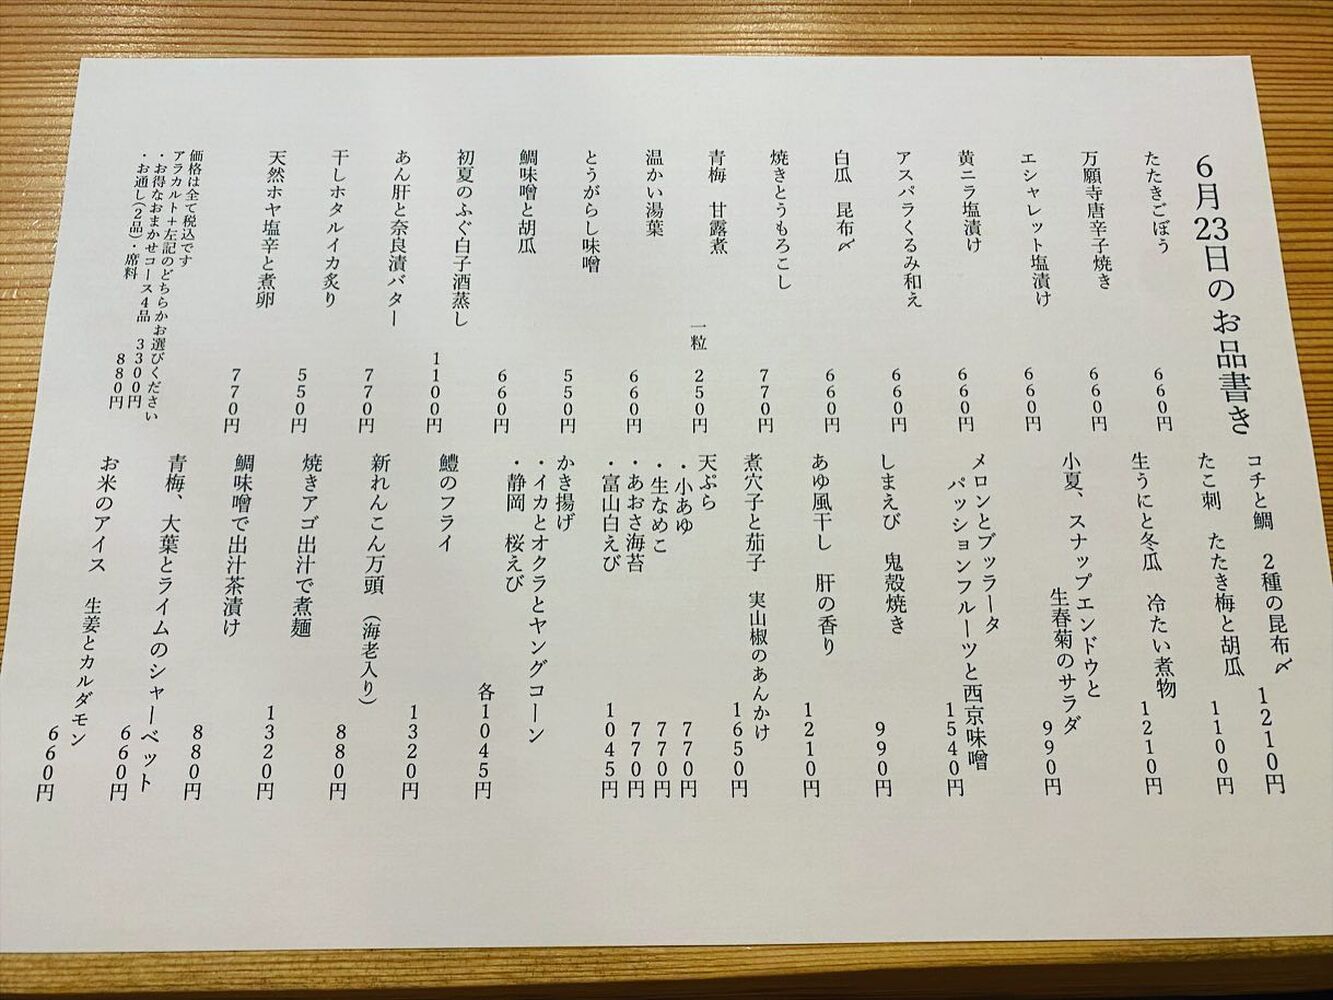 6月23日のお品書き
たたきごぼう 660円
万願寺唐辛子焼き 660円
エシャレット塩漬け 660円
黄ニラ塩漬け 660円
アスパラくるみ和え 660円
白瓜 昆布〆 660円
焼きとうもろこし 770円
青梅 甘露煮 一粒 250円
温かい湯葉 660円
とうがらし味噌 550円
鯛味噌と胡瓜 660円
初夏のふぐ白子酒蒸し 1100円
あん肝と奈良漬バター 770円
干しホタルイカ炙り 550円
天然ホヤ塩辛と煮卵 770円
価格は全て税込です
アラカルト+左記のどちらかお選びください
・お得なおまかせコース4品 3300円
・お通し(2品)・席料 880円
コチと鯛 2種の昆布〆 1210円
たこ刺 たたき梅と胡瓜 1100円
生うにと冬瓜 冷たい煮物 1210円
小夏、スナップエンドウと
生春菊のサラダ 990円
メロンとブッラータ
パッションフルーツと西京味噌 1540円
しまえび 鬼殻焼き 990円
あゆ風干し 肝の香り 1210円
煮穴子と茄子 実山椒のあんかけ 1650円
天ぷら
・小あゆ 770円
・生なめこ 770円
・あおさ海苔 770円
・富山白えび 1045円
かき揚げ
・イカとオクラとヤングコーン
・静岡 桜えび 各1045円
鱧のフライ 1320円
新れんこん万頭 (海老入り) 880円
焼きアゴ出汁で煮麺 1320円
鯛味噌で出汁茶漬け 880円
青梅、大葉とライムのシャーベット 660円
お米のアイス 生姜とカルダモン 660円